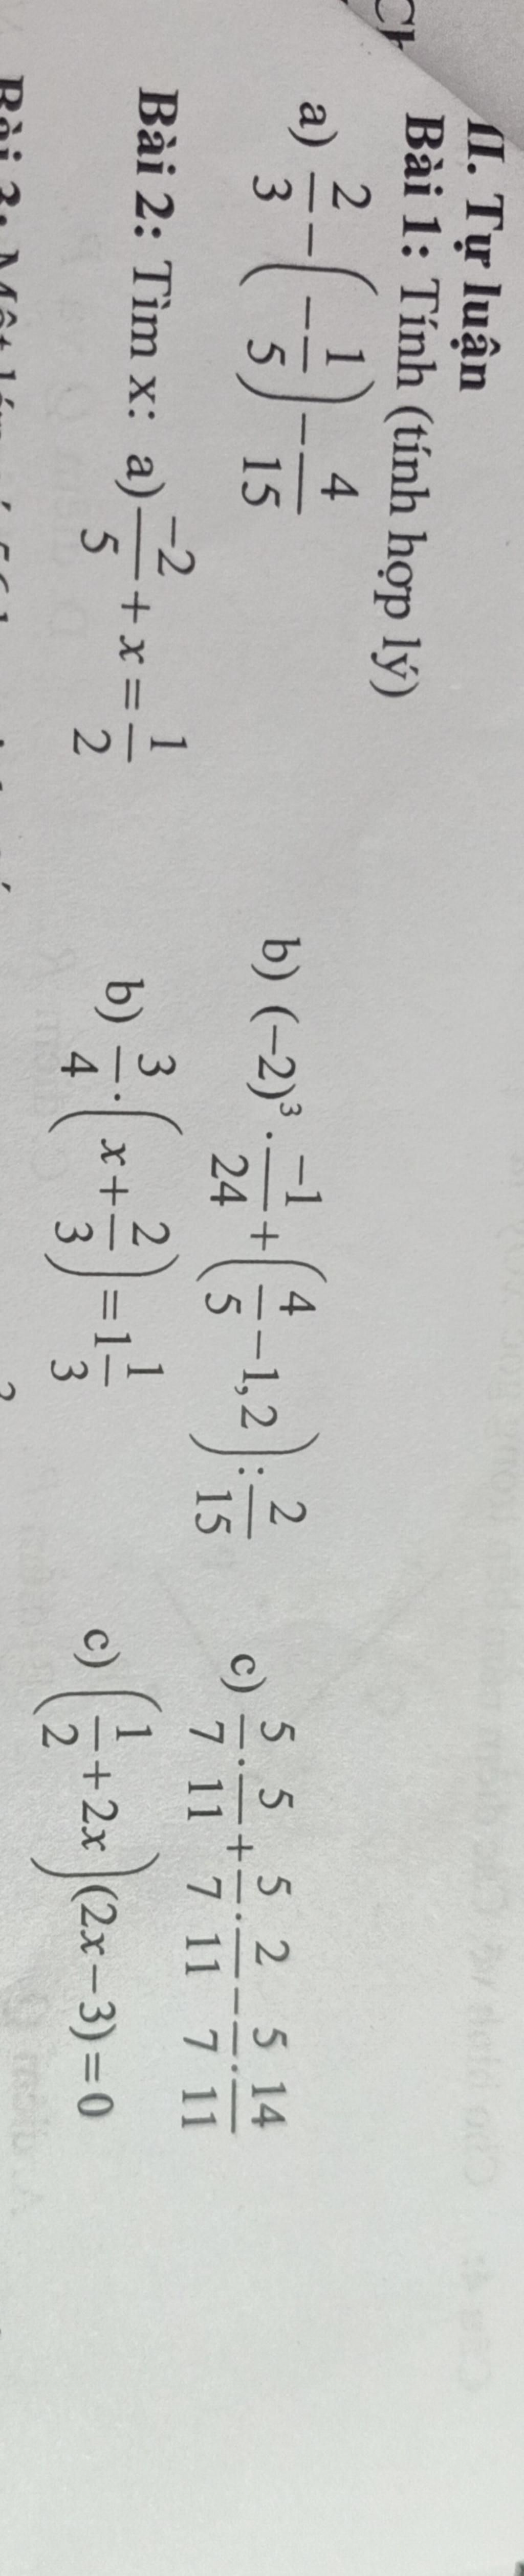 II. Tự luận
Bài 1: Tính (tính hợp lý)
a) 2/3 − (−1/5) − 4/15 b) (−2)³ · −1/24 + (4/5 − 1,2) : 2/15 c) 5/7 · 5/11 + 5/7 · 2/11 − 5/7 · 14/11
Bài 2: Tìm x: a) −2/5 + x = 1/2 b) 3/4 · (x + 2/3) = 1 1/3 c) (1/2 + 2x)(2x − 3) = 0
Bài 3: